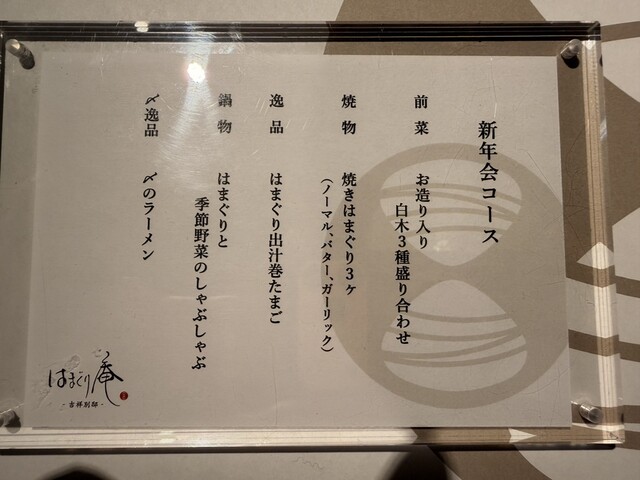 新年会コース
前菜 お造り入り
白木3種盛り合わせ
焼物 焼きはまぐり3ヶ
(ノーマル、バター、ガーリック)
逸品 はまぐり出汁巻たまご
鍋物 はまぐりと
季節野菜のしゃぶしゃぶ
〆逸品 〆のラーメン
はまぐり庵
-吉祥別邸-